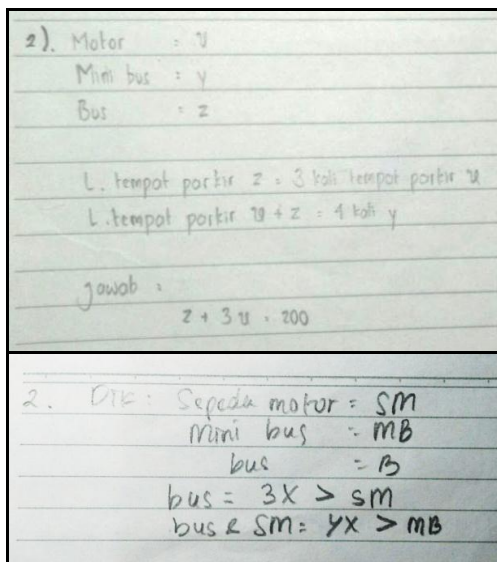 2). Motor = v
Mini bus = y
Bus = z
L. tempat parkir z = 3 kali tempat parkir v
L. tempat parkir v + z = 4 kali y
Jawab :
z + 3 v = 200
2. Dik : Sepeda motor = SM
Mini bus = MB
bus = B
bus = 3X > SM
bus & SM = 4X > MB